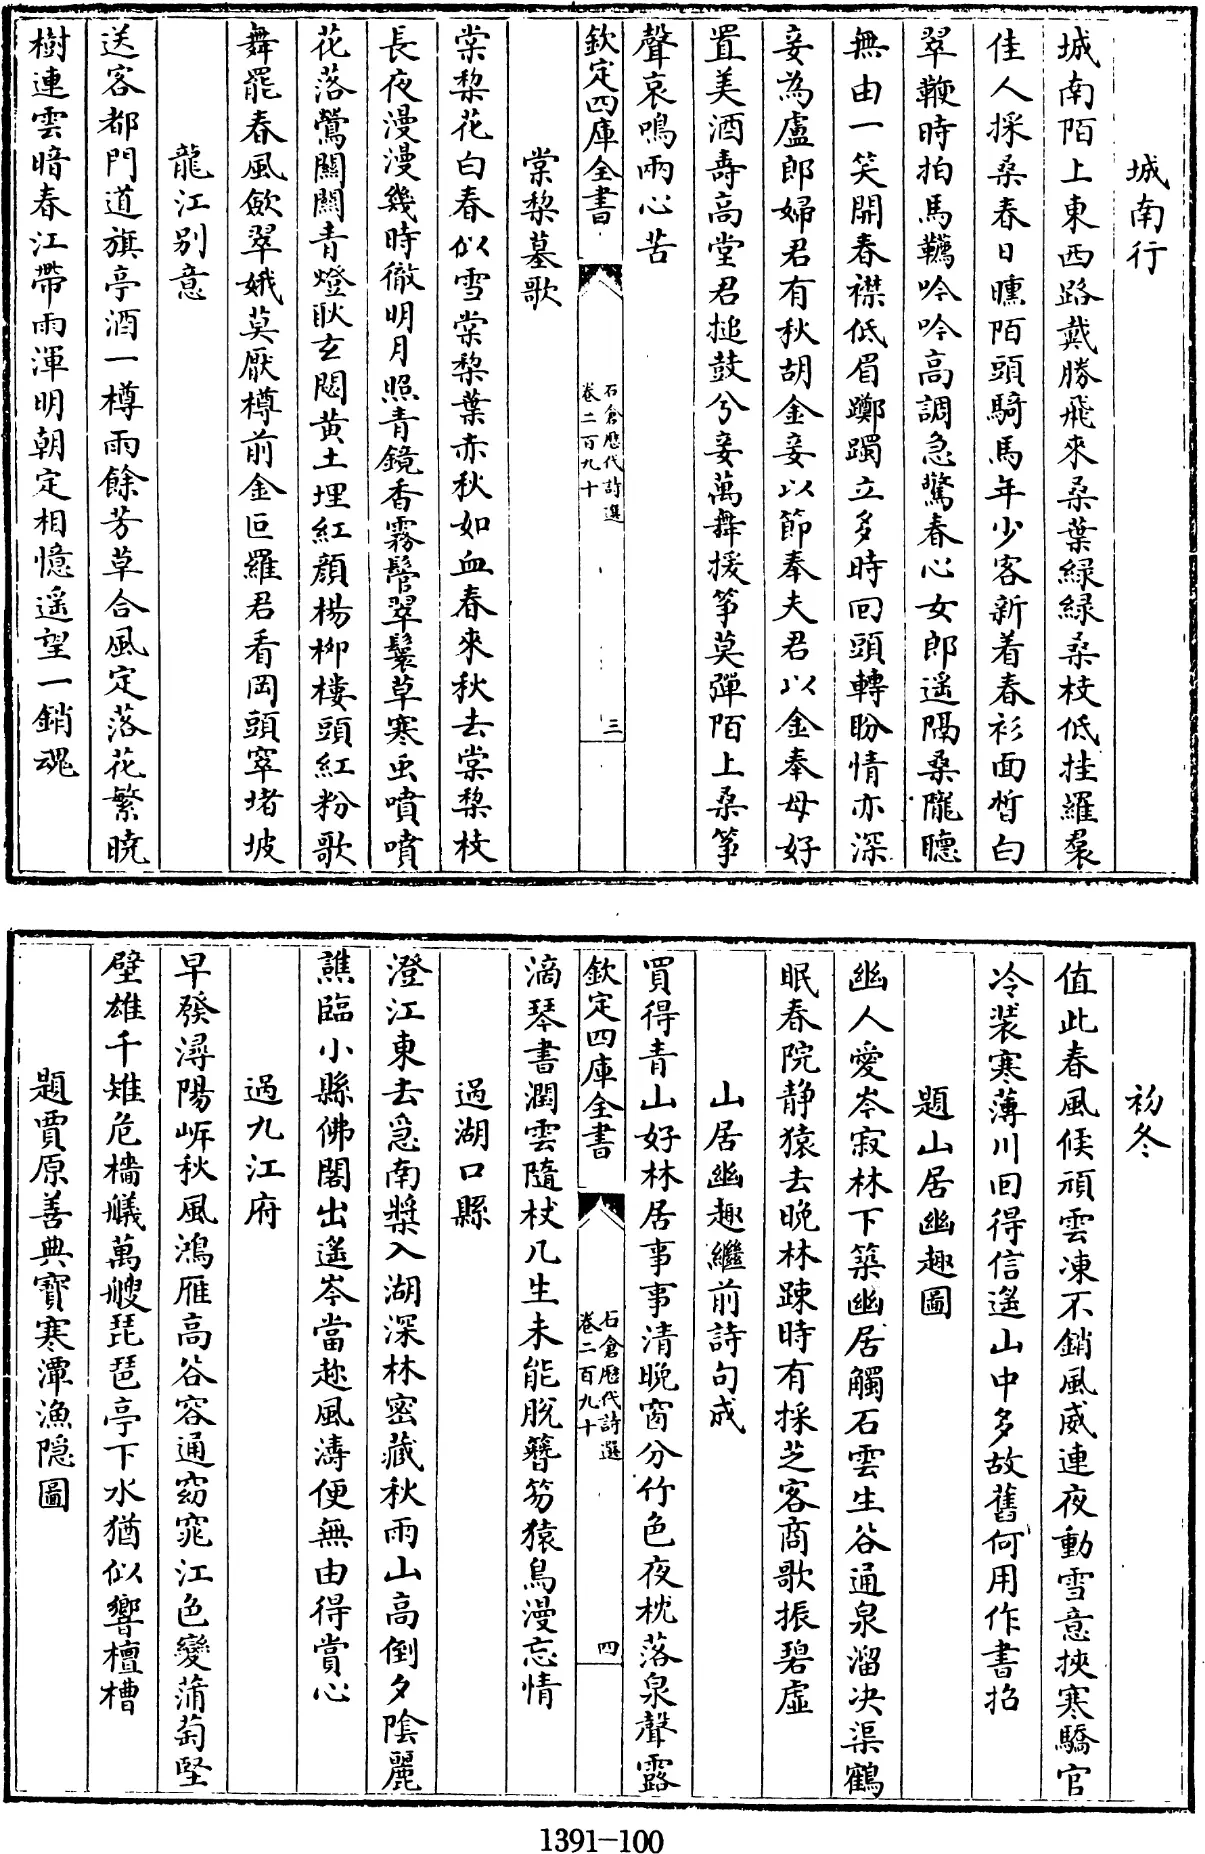 城南行
城南陌上東西路戴勝飛來桑葉緑緑桑枝低挂羅裙
佳人採桑春日曛陌頭騎馬年少客新着春衫面皙白
翠鞭時拍馬韉吟吟高調急驚春心女郎遥隔桑隴聴
無由一笑開春襟低眉躑躅立多時回頭轉盼情亦深
妾為盧郎婦君有秋胡金妾以節奉夫君以金奉母好
置美酒壽高堂君搥鼓兮妾萬舞援箏莫彈陌上桑箏
聲哀鳴兩心苦
欽定四庫全書
石倉歴代詩選
卷二百九十
三
棠梨墓歌
棠梨花白春似雪棠梨葉赤秋如血春來秋去棠梨枝
長夜漫漫幾時徹明月照青鏡香霧鬠翠鬟草寒虫噴噴
花落鶯關關青燈耿玄悶黄土埋紅顔楊柳樓頭紅粉歌
舞罷春風斂翠娥莫厭樽前金叵羅君看岡頭窣堵坡
龍江别意
送客都門道旗亭酒一樽雨餘芳草合風定落花繁暁
樹連雲暗春江帶雨渾明朝定相憶遥望一銷魂
初冬
值此春風候頑雲凍不銷風威連夜動雪意挾寒驕官
冷裘寒薄川回得信遥山中多故舊何用作書招
題山居幽趣圖
幽人愛岑寂林下築幽居觸石雲生谷通泉溜决渠鶴
眠春院静猿去晚林踈時有採芝客商歌振碧虚
山居幽趣繼前詩句成
買得青山好林居事事清晚窗分竹色夜枕落泉聲露
欽定四庫全書
石倉歴代詩選
卷二百九十
四
滴琴書潤雲隨杖几生未能脱簪笏猿鳥漫忘情
過湖口縣
澄江東去急南槳入湖深林密藏秋雨山高倒夕陰麗
譙臨小縣佛閣出遥岑當趂風濤便無由得賞心
過九江府
早發潯陽㟁秋風鴻雁高谷容通窈窕江色變蒲萄堅
壁雄千雉危檣艤萬艘琵琶亭下水猶似響檀槽
題賈原善典寳寒潭漁隠圖
1391-100